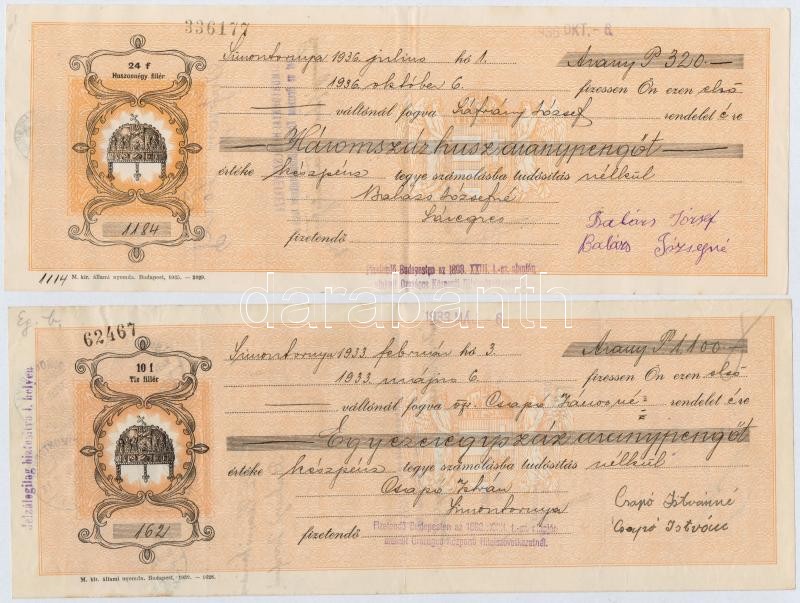 336177
OKT. - 6.
24 f
Huszonnégy fillér
Simontornya 1936. julius hó 1.
Arany P 320.—
1936. október 6.
fizessen Ön ezen első
váltónál fogva Sáfrány József rendelet é re
Háromszázhusz aranypengőt
értéke készpénz tegye számolásba tudósítás nélkül
Balázs Józsefné
Sáregres
fizetendő
1184
Balázs József
Balázs Józsefné
1114
M. kir. állami nyomda. Budapest, 1935. — 2029.
Fizetendő Budapesten az 1898. XXIII. t.-cz. alapján
alakult Országos Központi
darabanth
Eg. b.
62467
1933 6
10 f
Tiz fillér
Simontornya 1933. február hó 3.
Arany P 1100.—
1933. május 6.
fizessen Ön ezen első
váltónál fogva özv. Csapó Jánosné rendelet é re
Egyezeregyszáz aranypengőt
értéke készpénz tegye számolásba tudósítás nélkül
Csapó István
Simontornya
fizetendő
162
Csapó Istvánné
Csapó István
Fizetendő Budapesten az 1898. XXIII. t.-cz. alapján
alakult Országos Központi Hitelszövetkezetnél.
Jelzálogilag biztosítva I. helyen
M. kir. állami nyomda. Budapest, 1932. — 1028.